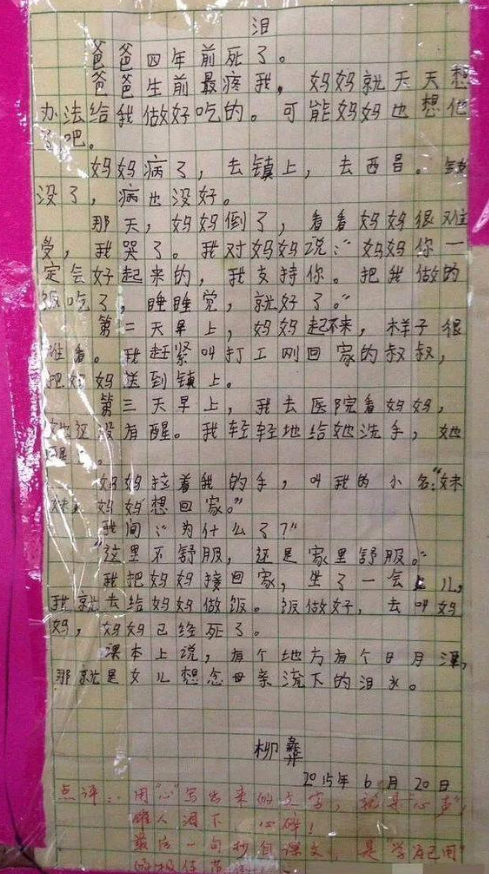 泪
爸爸四年前死了。
爸爸生前最疼我，妈妈就天天想
办法给我做好吃的。可能妈妈也想他
了吧。
妈妈病了，去镇上，去西昌。钱
没了，病也没好。
那天，妈妈倒了，看看妈妈很难
受，我哭了。我对妈妈说：“妈妈你一
定会好起来的，我支持你。把我做的
饭吃了，睡睡觉，就好了。”
第二天早上，妈妈起不来，样子很
难看。我赶紧叫打工刚回家的叔叔，
把妈妈送到镇上。
第三天早上，我去医院看妈妈，
她还没有醒。我轻轻地给她洗手，她
醒了。
妈妈拉着我的手，叫我的小名：“妹
妹，妈妈想回家。”
我问：“为什么了？”
“这里不舒服，还是家里舒服。”
我把妈妈接回家，坐了一会儿，
我就去给妈妈做饭。饭做好，去叫妈
妈，妈妈已经死了。
课本上说，有个地方有个日月潭，
那就是女儿想念母亲流下的泪水。
柳彝
2015年6月20日
点评：用“心”写出来的文字，就是心声，
催人泪下，心碎！
最后一句抄自课文，是“学有己用”
的极佳范